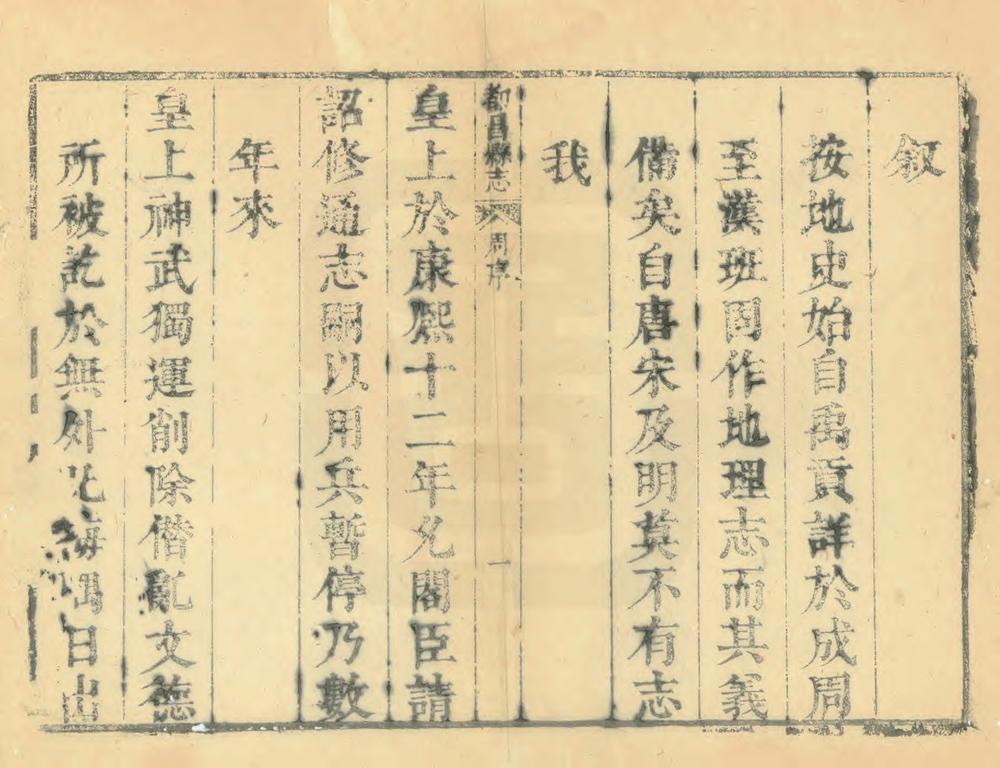 叙
按地史始自禹貢詳於成周
至漢班固作地理志而其義
備矣自唐宋及明莫不有志
我
都昌縣志 周序 一
皇上於康熙十二年允閣臣請
詔修通志嗣以用兵暫停乃數
年來
皇上神武獨運削除僭亂文德
所被訖於無外光海隅日出